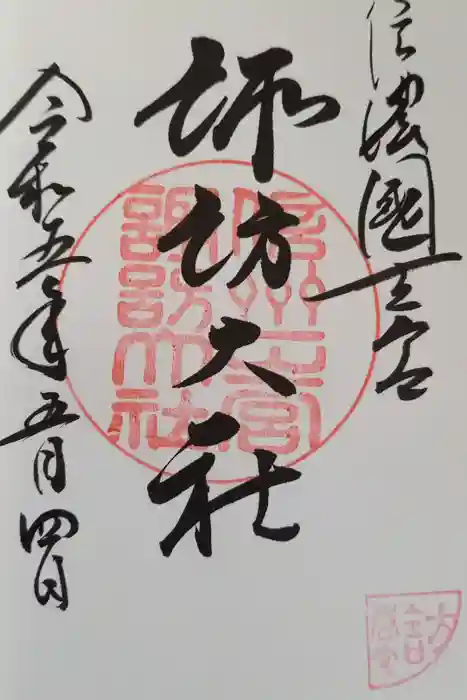 信濃國一之宮
諏訪大社
令和五年五月四日
信州一之宮
諏訪大社